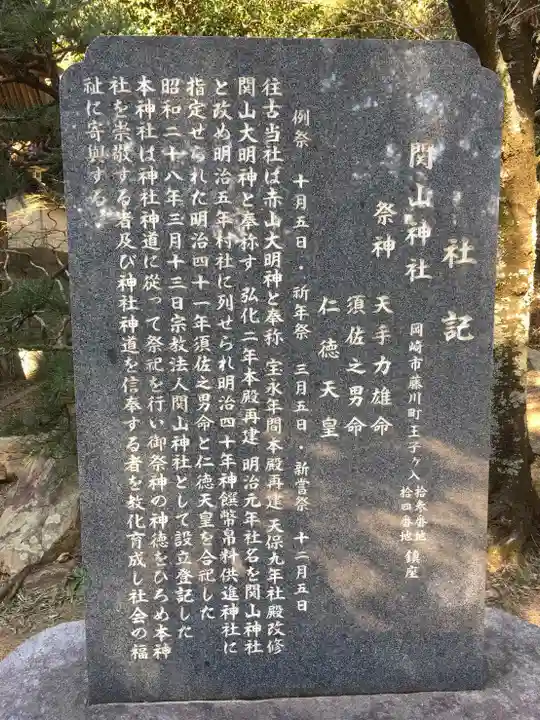 社記
関山神社
岡崎市藤川町王子ヶ入 拾参番地 拾四番地 鎮座
祭神
天手力雄命
須佐之男命
仁徳天皇
例祭 十月五日・祈年祭 三月五日・新嘗祭 十二月五日
往古当社は赤山大明神と奉称 宝永年間本殿再建 天保九年社殿改修
関山大明神と奉称す 弘化二年本殿再建 明治元年社名を関山神社
と改め明治五年村社に列せられ明治四十年神饌幣帛料供進神社に
指定せられた明治四十一年須佐之男命と仁徳天皇を合祀した
昭和二十八年三月十三日宗教法人関山神社として設立登記した
本神社は神社神道に從って祭祀を行い御祭神の神徳をひろめ本神
社を崇敬する者及び神社神道を信奉する者を教化育成し社会の福
祉に寄與する